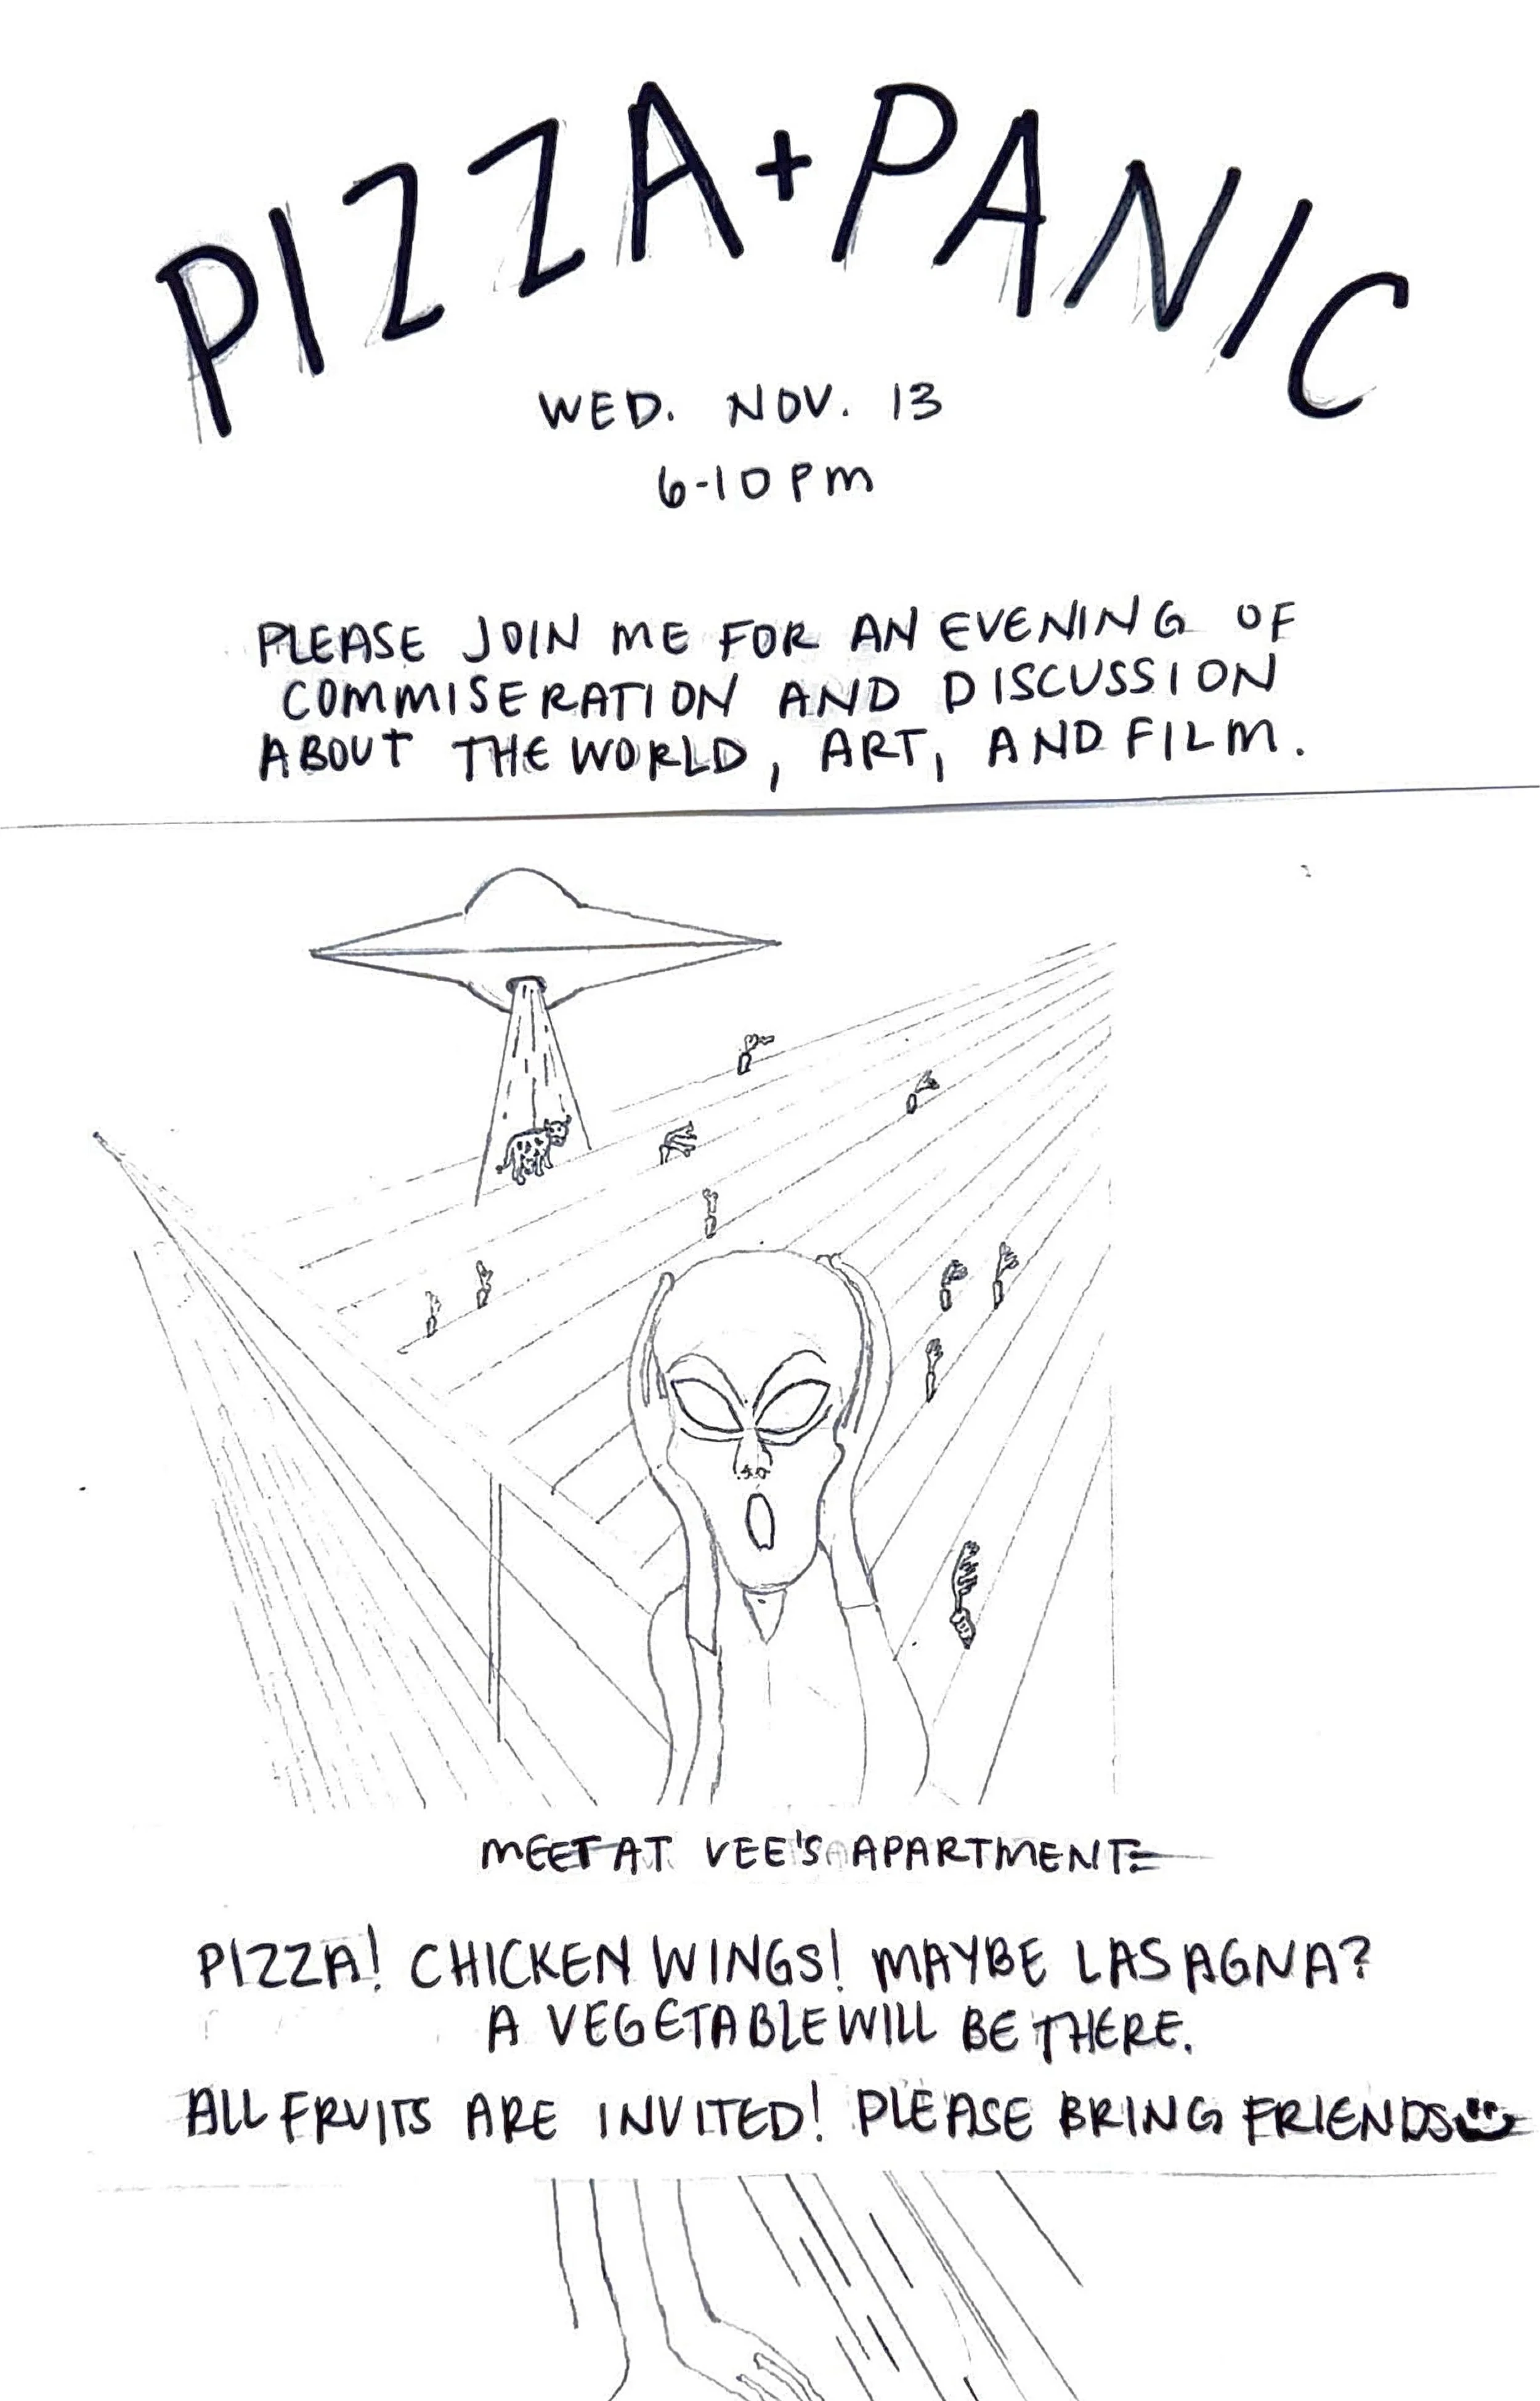 PIZZA + PANIC
WED. NOV. 13
6-10 PM
PLEASE JOIN ME FOR AN EVENING OF
COMMISERATION AND DISCUSSION
ABOUT THE WORLD, ART, AND FILM.
MEET AT VEE'S APARTMENT
PIZZA! CHICKEN WINGS! MAYBE LASAGNA?
A VEGETABLE WILL BE THERE.
ALL FRUITS ARE INVITED! PLEASE BRING FRIENDS